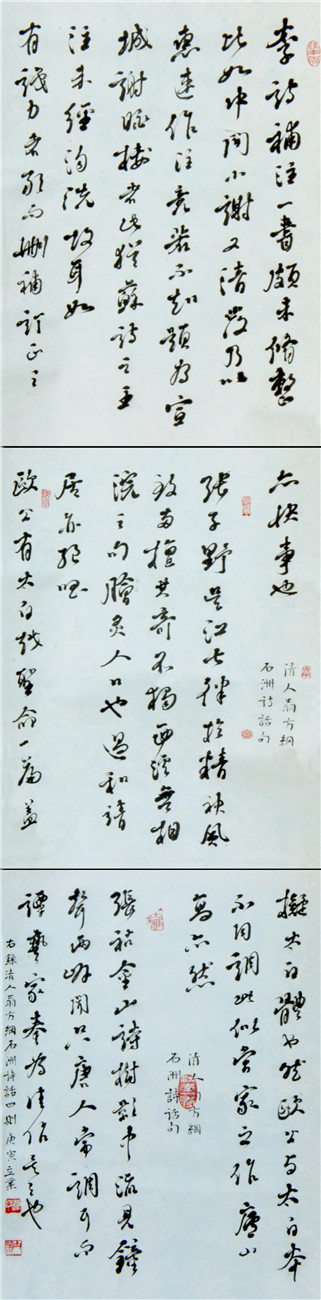 李诗補注一書頗未脩整
此如中間小謝又清發乃以
惠連作注竟若不知題為宣
城謝眺樓者此猶蘇詩之王
注未經洵洗故耳如
有識力者致而刪補訂正之
亦快事也
清人翁方綱
石洲詩話句
張子野吳江七律於精神風
致兩擅其奇不獨西溪無相
浣之句膾炙人口也過和靖
居亦絕唱
歐公有太白戏聖俞一篇蓋
擬太白體也然歐公与太白本
不同調此似当家之作廬山
高亦然
清人翁方綱
石洲詩話句
張祜金山詩樹影中流見鐘
聲兩岸聞只唐人常調耳而
譚藝家奉為佳作甚矣也
右録清人翁方綱石洲詩話四則庚寅立業